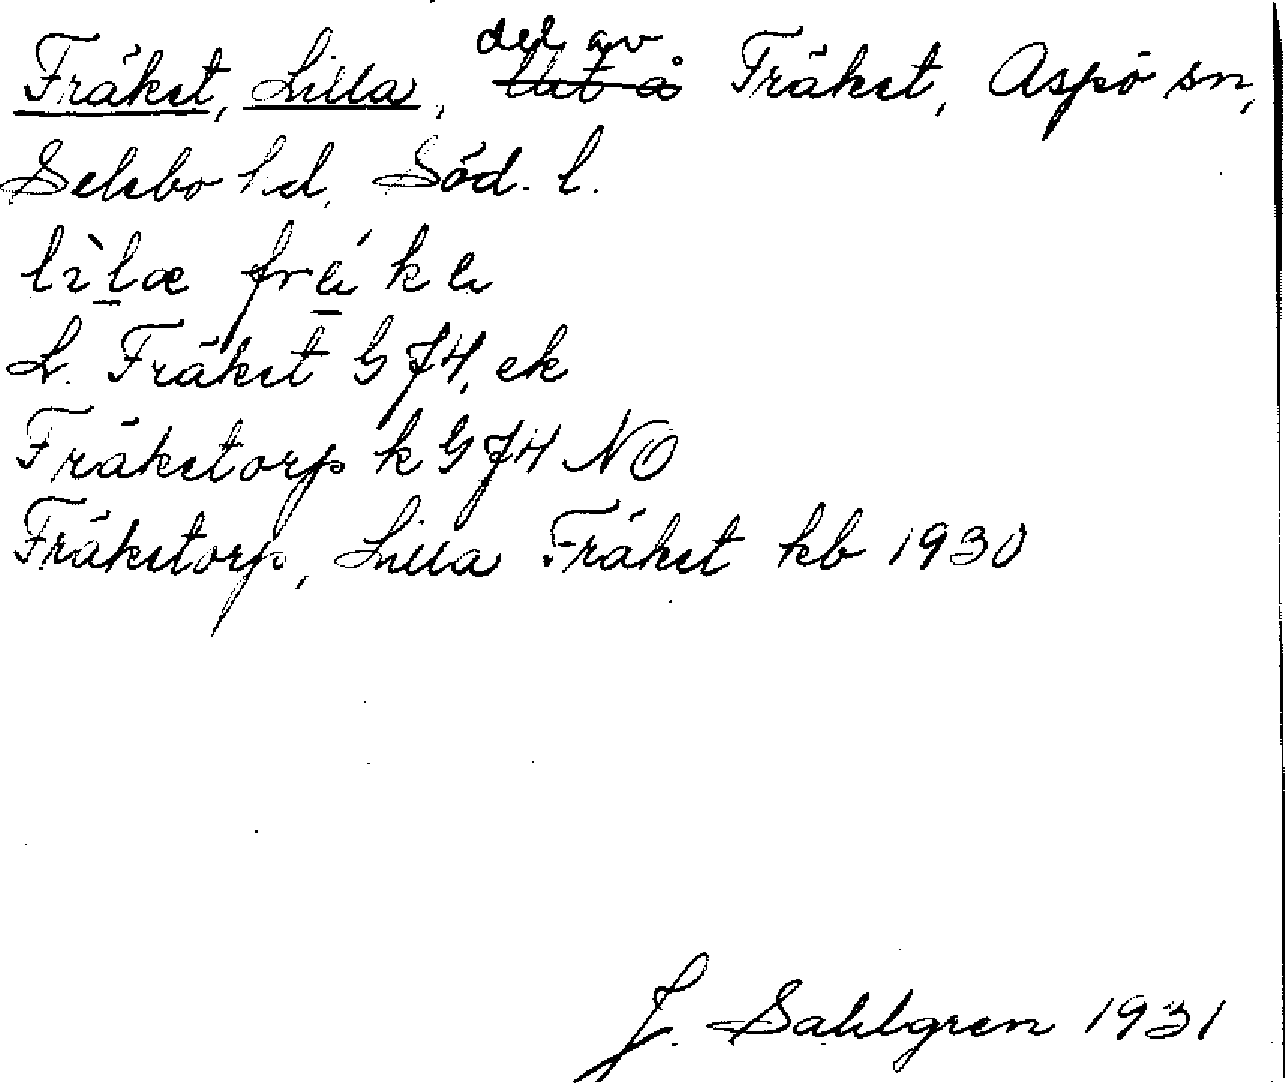 Fräket, Lilla, del av Fräket, Aspö sn,
Selebo hd, Söd. l.
L. Fräket G 74, ek
Fräketorp k G 74 NO
Fräketorp, Lilla Fräket kb 1930
J. Sahlgren 1931